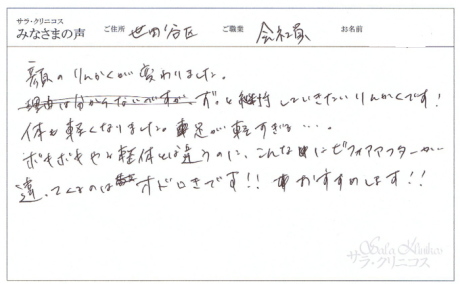 サラ・クリニコス
みなさまの声 ご住所 世田谷区 ご職業 会社員 お名前
顔のりんかくが変わりました。
理由は分からないですが、ずっと維持していきたいりんかくです!
体も軽くなりました。足が軽すぎる…。
ボキボキやる整体とは違うのに、こんなにビフォアアフターが
違ってくるのはオドロきです!! おすすめします!!
Sala Klinikos
サラ・クリニコス